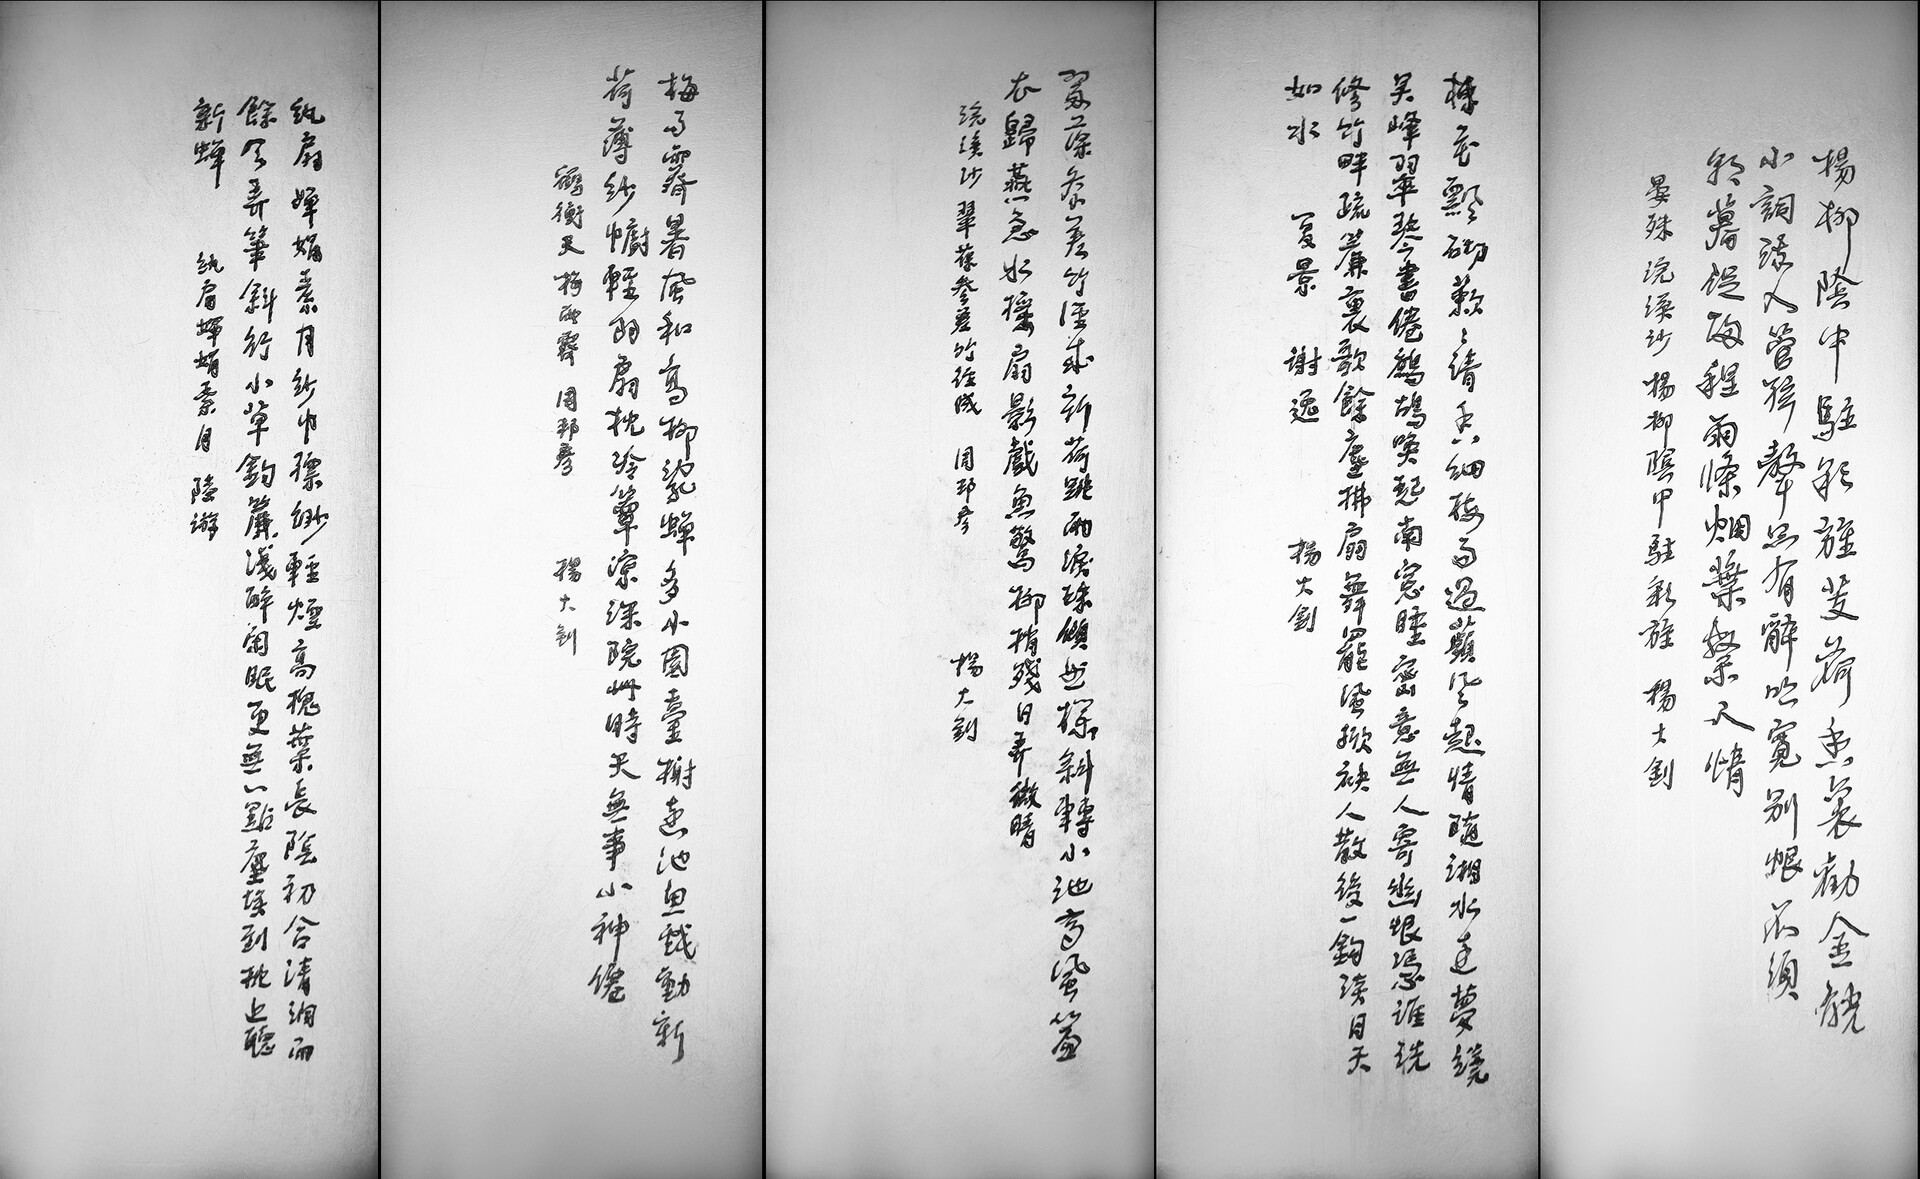 楊柳陰中駐彩旌芰荷香裏勸金觥
小詞流入管絃聲只有醉吟寬別恨不須
朝暮促歸程雨條烟葉繫人情
晏殊 浣溪沙 楊柳陰中駐彩旌 楊大釗
楝花飄砌蔌々清香細梅雨過蘋風起情隨湘水遠夢繞
吳峰翠琴書倦鷓鴣喚起南窗睡密意無人寄幽恨憑誰洗
修竹畔疏簾裏歌餘塵拂扇舞罷風掀袂人散後一鉤淡月天
如水 夏景 謝逸 楊大釗
翠葆參差竹徑成新荷跳雨淚珠傾曲欄斜轉小池亭風簾
衣歸燕急水搖扇影戲魚驚柳梢殘日弄微晴
浣溪沙 翠葆參差竹徑成 周邦彥 楊大釗
梅雨霽暑風和高柳亂蟬多小園臺榭遠池魚戲動新
荷薄紗幮輕羽扇枕冷簟涼深院此時天無事小神僊
鶴衝天 梅雨霽 周邦彥 楊大釗
紈扇嬋娟素月紗巾縹緲輕煙高槐葉長陰初合清潤雨
餘天弄筆斜行小草鉤簾淺醉閒眠更無一點塵埃到枕上聽
新蟬 紈扇嬋娟素月 陸游